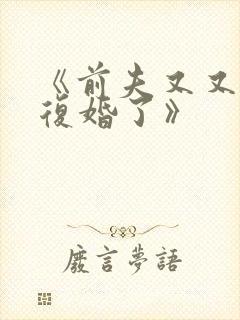 《前夫又又
復婚了》
廢言夢語